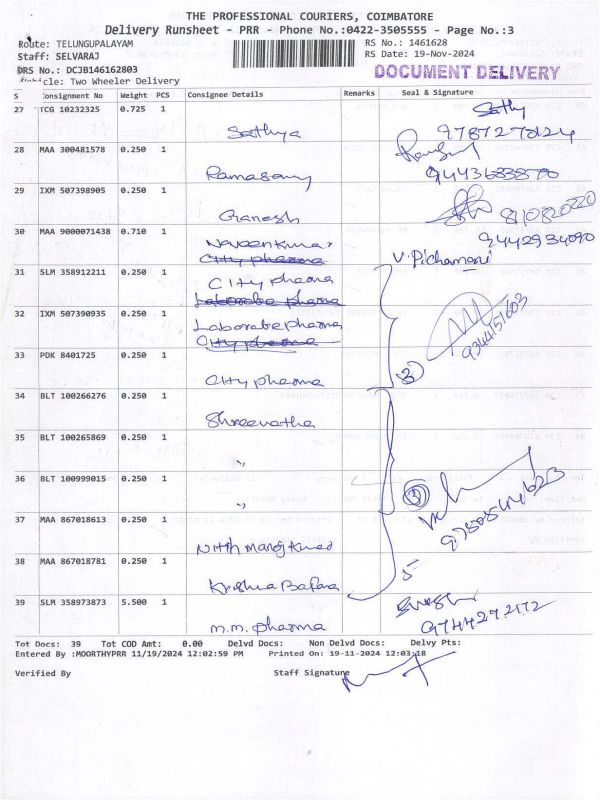 THE PROFESSIONAL COURIERS, COIMBATORE
Delivery Runsheet - PRR - Phone No.:0422-3505555 - Page No.:3
Route: TELUNGUPALAYAM RS No.: 1461628
Staff: SELVARAJ RS Date: 19-Nov-2024
DRS No.: DCJB146162803 DOCUMENT DELIVERY
Vehicle: Two Wheeler Delivery
S Consignment No Weight PCS Consignee Details Remarks Seal & Signature
27 TCG 10232325 0.725 1
Sathya
28 MAA 300481578 0.250 1
Ramasamy
29 IXM 507398905 0.250 1
Ganesh
30 MAA 9000071438 0.710 1 9442934090
Naveenkumar
City pharma V. Pichamani
31 SLM 358912211 0.250 1
City pharma
Laborate pharma
32 IXM 507390935 0.250 1
Laborate pharma 9344151603
City pharma
33 PDK 8401725 0.250 1
City pharma 3
34 BLT 100266276 0.250 1
Shreenatha
35 BLT 100265869 0.250 1
"
36 BLT 100999015 0.250 1
" 3
37 MAA 867018613 0.250 1
Nithi Manoj Kumar
38 MAA 867018781 0.250 1
39 SLM 358973873 5.500 1
m.m. pharma 9744272172
Tot Docs: 39 Tot COD Amt: 0.00 Delvd Docs: Non Delvd Docs: Delvy Pts:
Entered By :MOORTHYPRR 11/19/2024 12:02:59 PM Printed On: 19-11-2024 12:03:18
Verified By Staff Signature